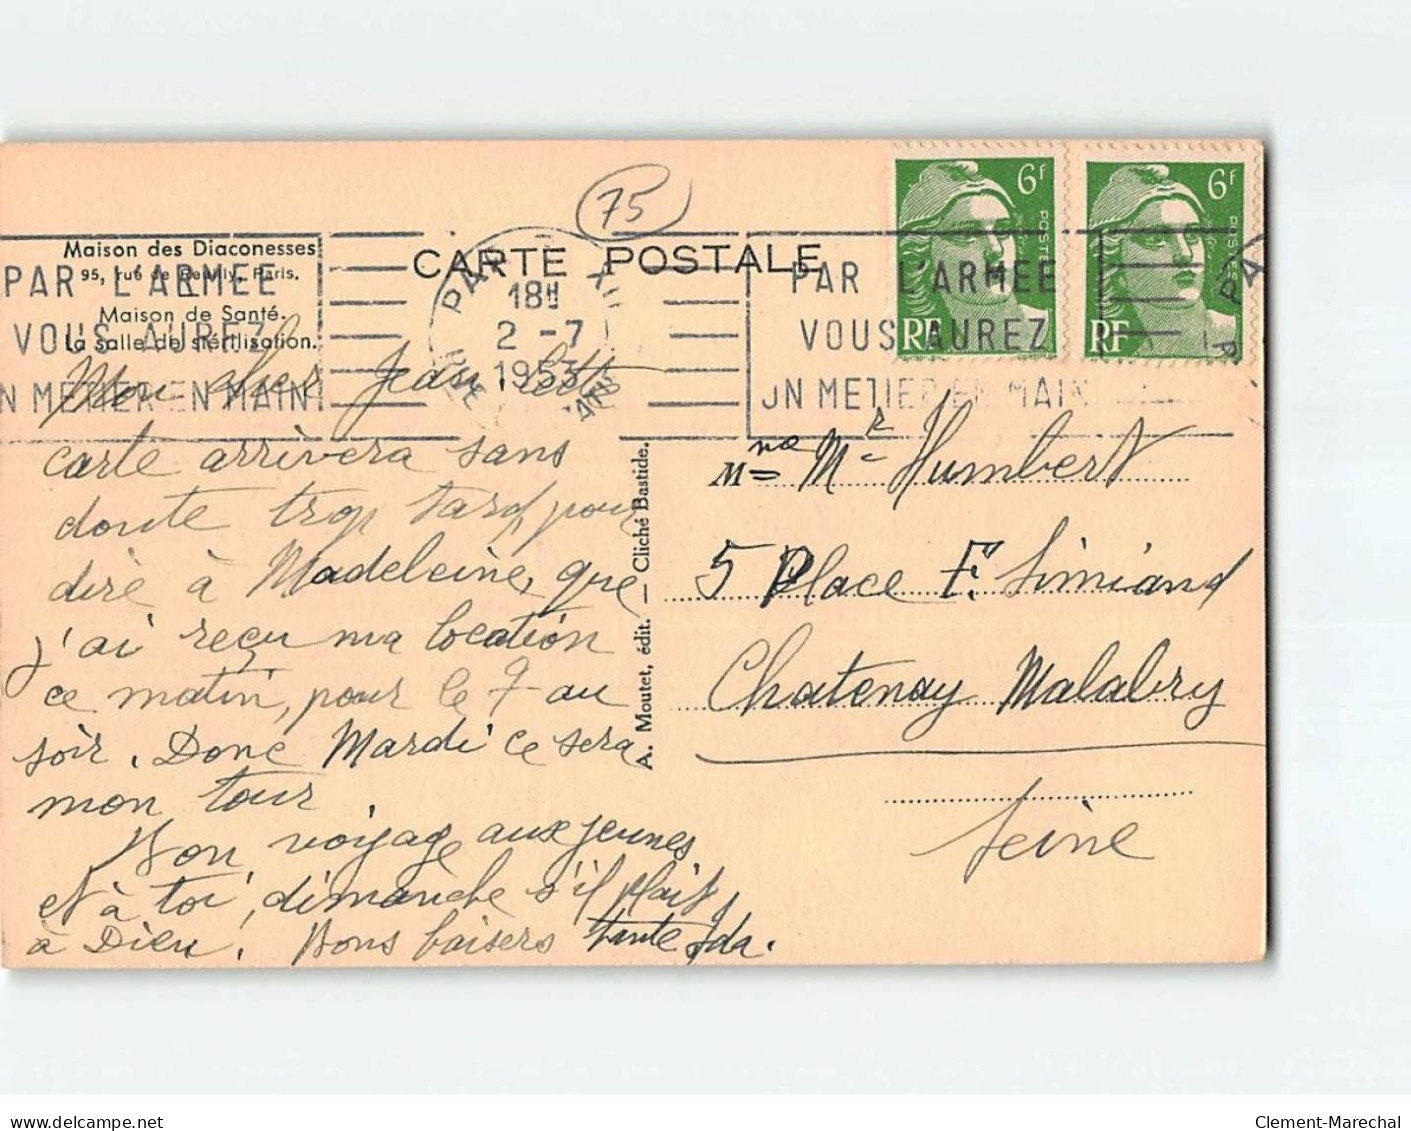 75
Maison des Diaconesses
95, rue de Reuilly, Paris.
Maison de Santé.
La Salle de stérilisation.
CARTE POSTALE
PAR L'ARMEE
VOUS AUREZ
UN METIER EN MAIN
18H
2 - 7
1953
PAR L'ARMEE
VOUS AUREZ
UN METIER EN MAIN
6F
POSTES
RF
6F
POSTES
RF
Mon cher Jean, cette
carte arrivera sans
doute trop tard, pour
dire à Madeleine, que
j'ai reçu ma location
ce matin, pour le 7 au
soir. Donc Mardi ce sera
mon tour.
Bon voyage aux jeunes
et à toi, dimanche s'il plait
à Dieu. Bons baisers tante Ida.
A. Moutet, édit. — Cliché Bastide.
Mme Mr Humbert
5 Place F. Simiand
Chatenay Malabry
Seine
Clement-Marechal